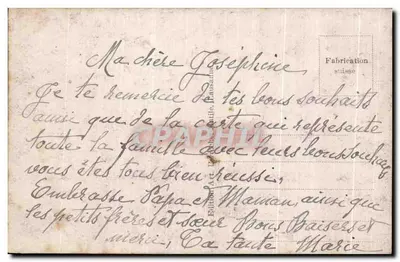 Ma chère Joséphine
Fabrication
suisse
Je te remercie de tes bons souhaits
ainsi que de la carte qui représente
toute la famille avec leurs bons souhaits
vous êtes tous bien réussi,
Embrasse Papa et Maman, ainsi que
les petits frères et sœur Bons Baisers et
merci, Ta tante Marie